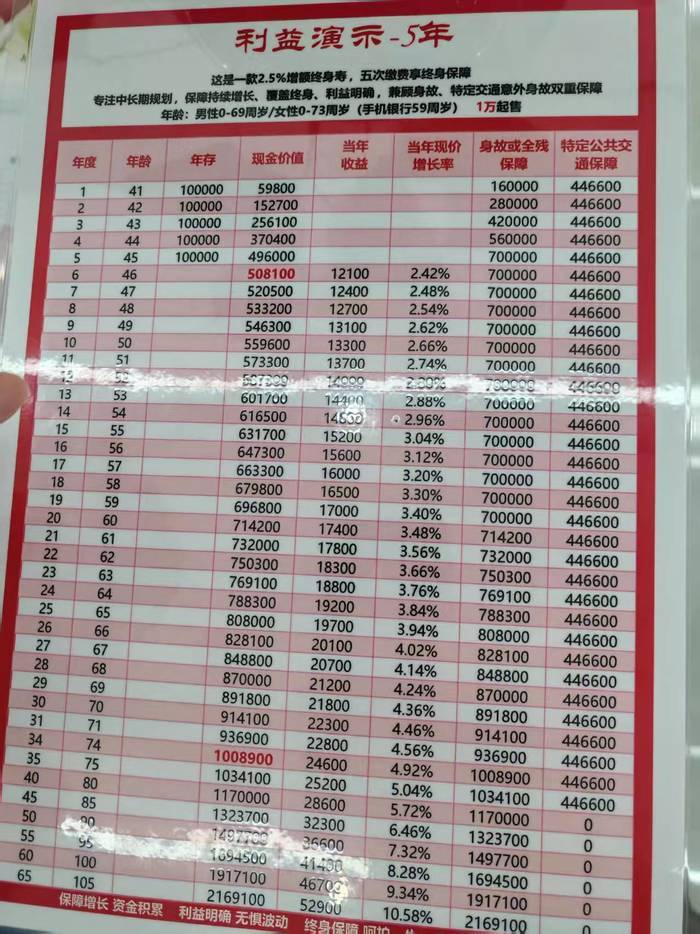 利益演示-5年
这是一款2.5%增额终身寿，五次缴费享终身保障
专注中长期规划，保障持续增长、覆盖终身、利益明确，兼顾身故、特定交通意外身故双重保障
年龄：男性0-69周岁/女性0-73周岁（手机银行59周岁） 1万起售
年度 年龄 年存 现金价值 当年收益 当年现价增长率 身故或全残保障 特定公共交通保障
1 41 100000 59800 160000 446600
2 42 100000 152700 280000 446600
3 43 100000 256100 420000 446600
4 44 100000 370400 560000 446600
5 45 100000 496000 700000 446600
6 46 508100 12100 2.42% 700000 446600
7 47 520500 12400 2.48% 700000 446600
8 48 533200 12700 2.54% 700000 446600
9 49 546300 13100 2.62% 700000 446600
10 50 559600 13300 2.66% 700000 446600
11 51 573300 13700 2.74% 700000 446600
12 52 700000 446600
13 53 601700 14400 2.88% 700000 446600
14 54 616500 14800 2.96% 700000 446600
15 55 631700 15200 3.04% 700000 446600
16 56 647300 15600 3.12% 700000 446600
17 57 663300 16000 3.20% 700000 446600
18 58 679800 16500 3.30% 700000 446600
19 59 696800 17000 3.40% 700000 446600
20 60 714200 17400 3.48% 714200 446600
21 61 732000 17800 3.56% 732000 446600
22 62 750300 18300 3.66% 750300 446600
23 63 769100 18800 3.76% 769100 446600
24 64 788300 19200 3.84% 788300 446600
25 65 808000 19700 3.94% 808000 446600
26 66 828100 20100 4.02% 828100 446600
27 67 848800 20700 4.14% 848800 446600
28 68 870000 21200 4.24% 870000 446600
29 69 891800 21800 4.36% 891800 446600
30 70 914100 22300 4.46% 914100 446600
31 71 936900 22800 4.56% 936900 446600
34 74 1008900 24600 4.92% 1008900 446600
35 75 1034100 25200 5.04% 1034100 446600
40 80 1170000 28600 5.72% 1170000 0
45 85 1323700 32300 6.46% 1323700 0
50 90 1497700 36600 7.32% 1497700 0
55 95 1694500 41400 8.28% 1694500 0
60 100 1917100 46700 9.34% 1917100 0
65 105 2169100 52900 10.58% 2169100 0
保障增长 资金积累 利益明确 无惧波动 终身保障 呵护